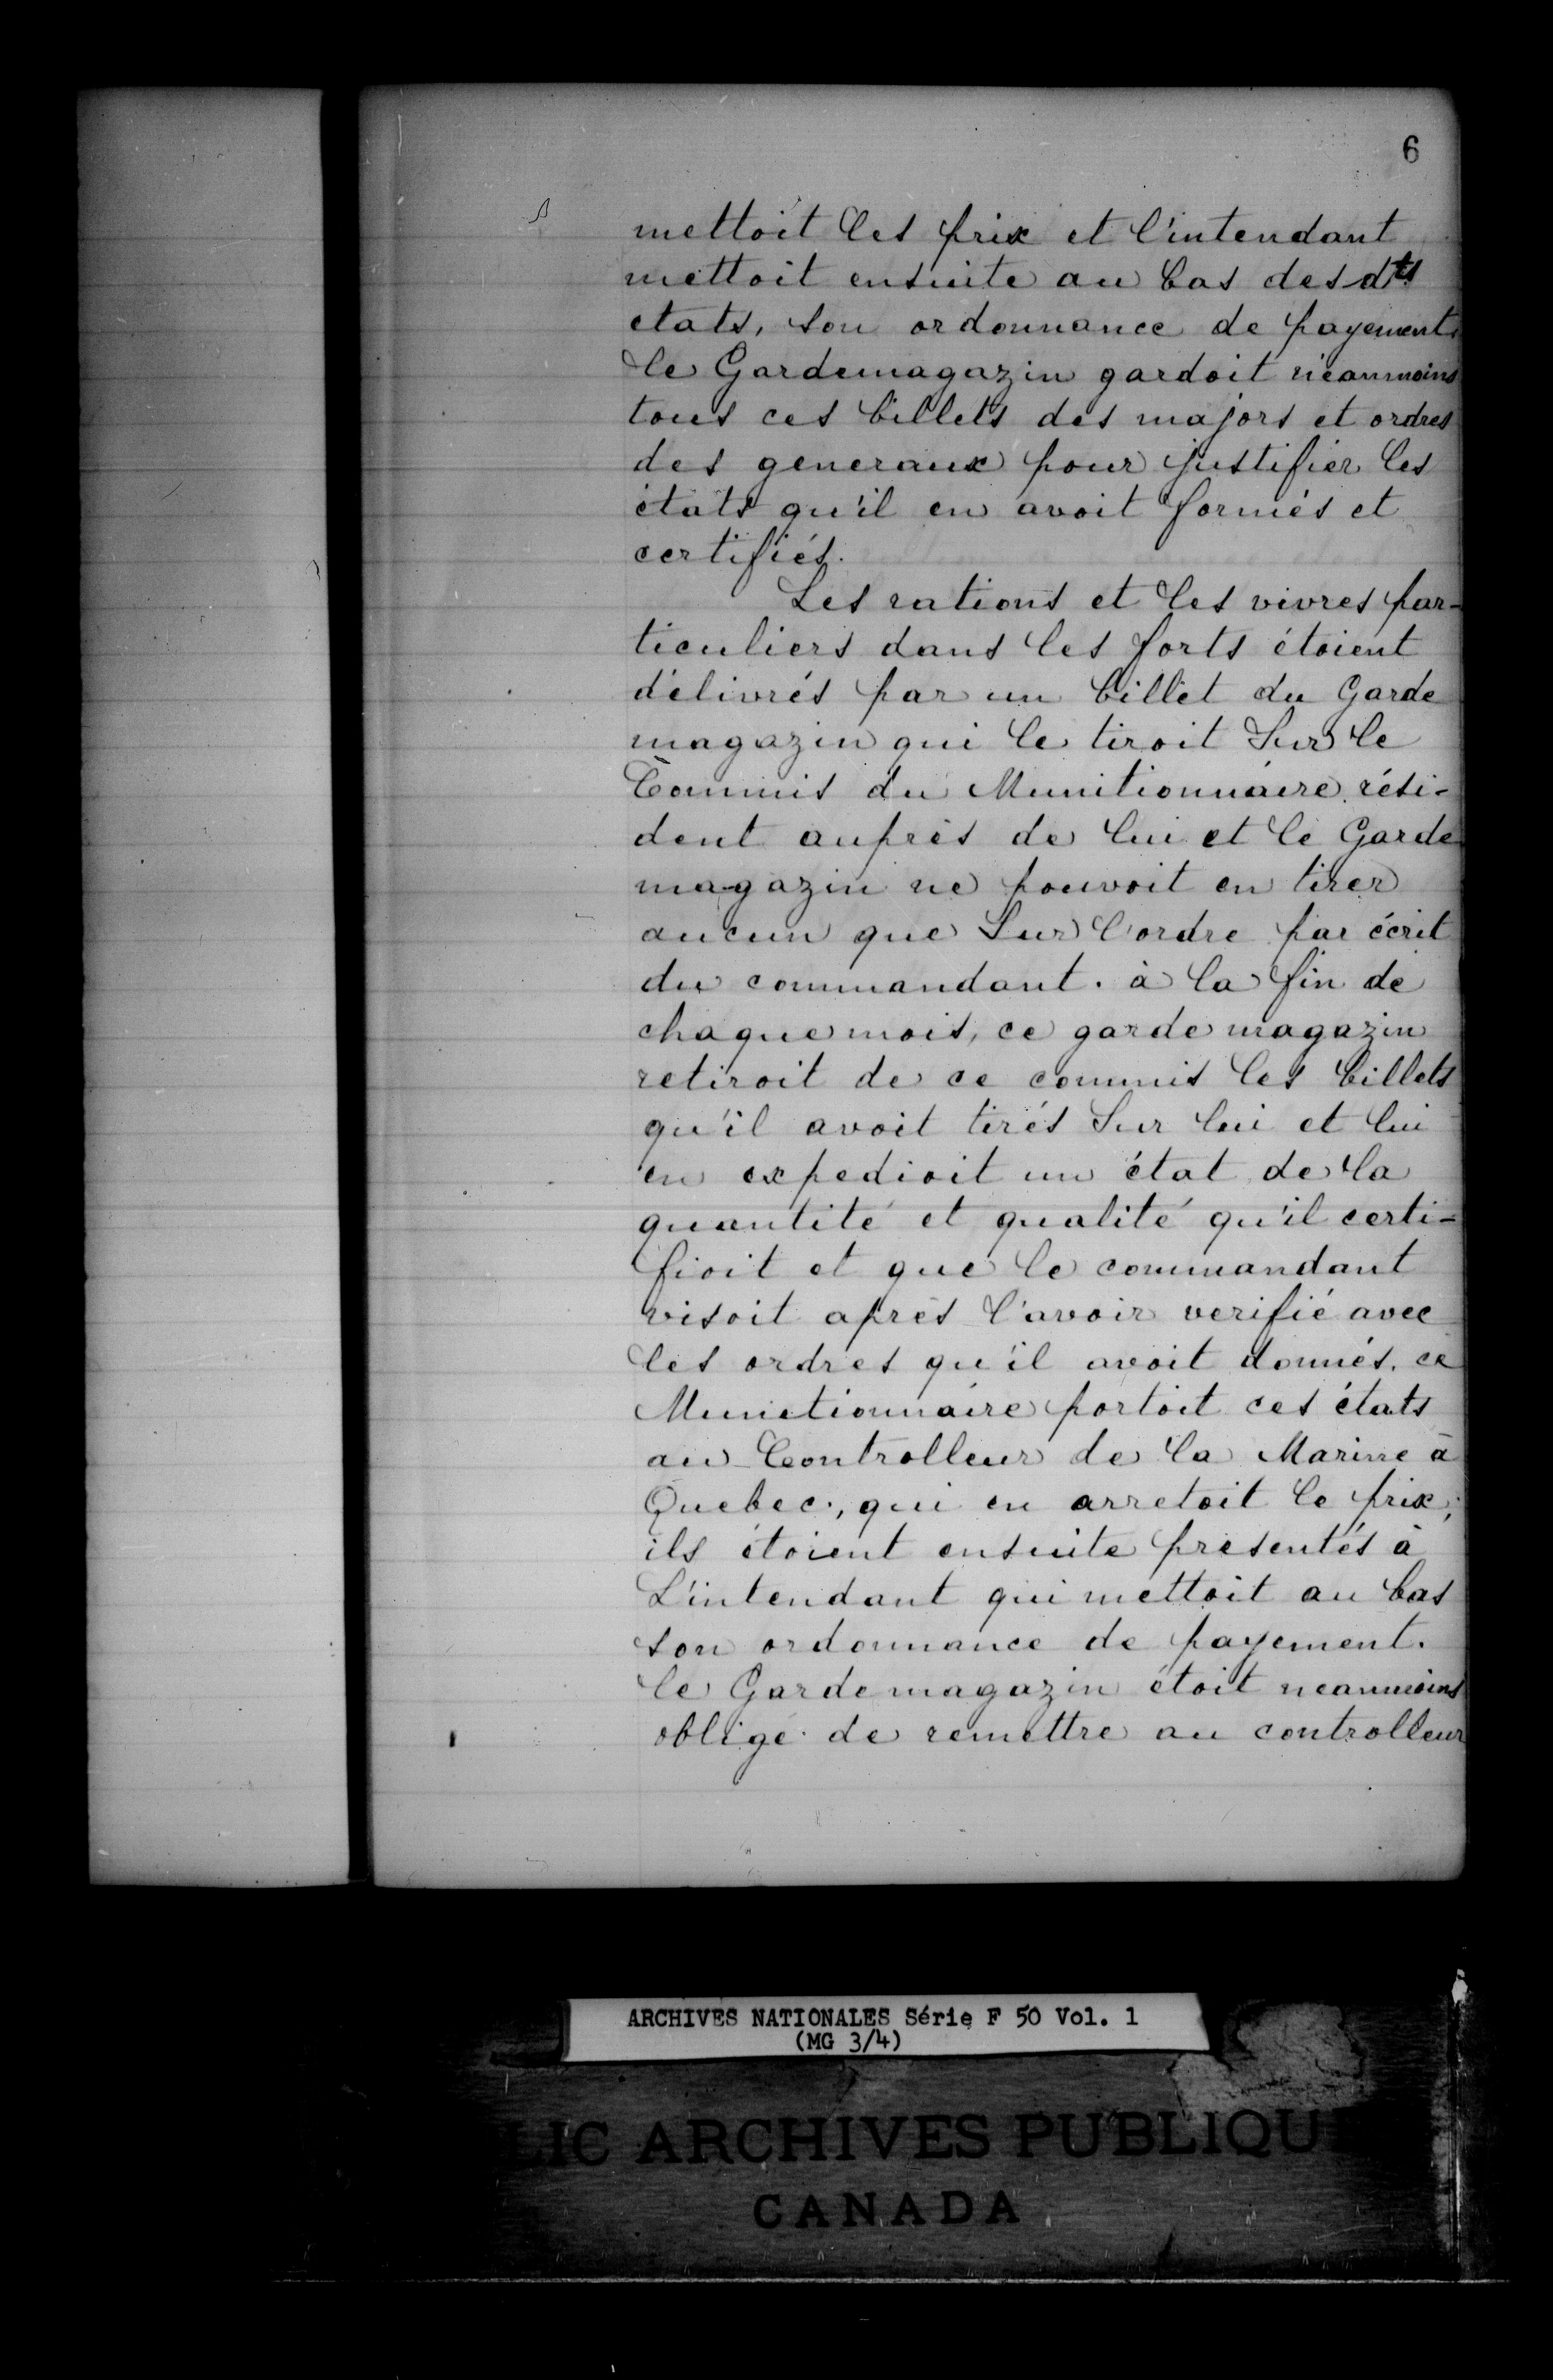 6
mettoit les prix et l'intendant
mettoit ensuite au bas des dts
etats, son ordonnance de payement
le Gardemagazin gardoit néanmoins
tous ces billets des majors et ordres
des generaux pour justifier les
états qu'il en avoit formés et
certifiés.
Les rations et les vivres par-
ticuliers dans les forts étoient
délivrés par un billet du Garde
magazin qui le tiroit Sur le
Commis du Munitionnaire rési-
dent auprès de lui et le Garde
magazin ne pouvoit en tirer
aucun que Sur l'ordre par écrit
du commandant. à la fin de
chaque mois, ce garde magazin
retiroit de ce commis les billets
qu'il avoit tirés Sur lui et lui
en expedioit un état de la
quantité et qualité qu'il certi-
fioit et que le commandant
visoit après l'avoir verifié avec
les ordres qu'il avoit donnés. ce
Munitionnaire portoit ces états
au Controlleur de la Marine à
Quebec, qui en arretoit le prix;
ils étoient ensuite presentés à
L'intendant qui mettoit au bas
son ordonnance de payement.
le Garde magazin étoit neanmoins
obligé de remettre au controlleur
ARCHIVES NATIONALES Série F 50 Vol. 1
(MG 3/4)
LIC ARCHIVES PUBLIQU
CANADA